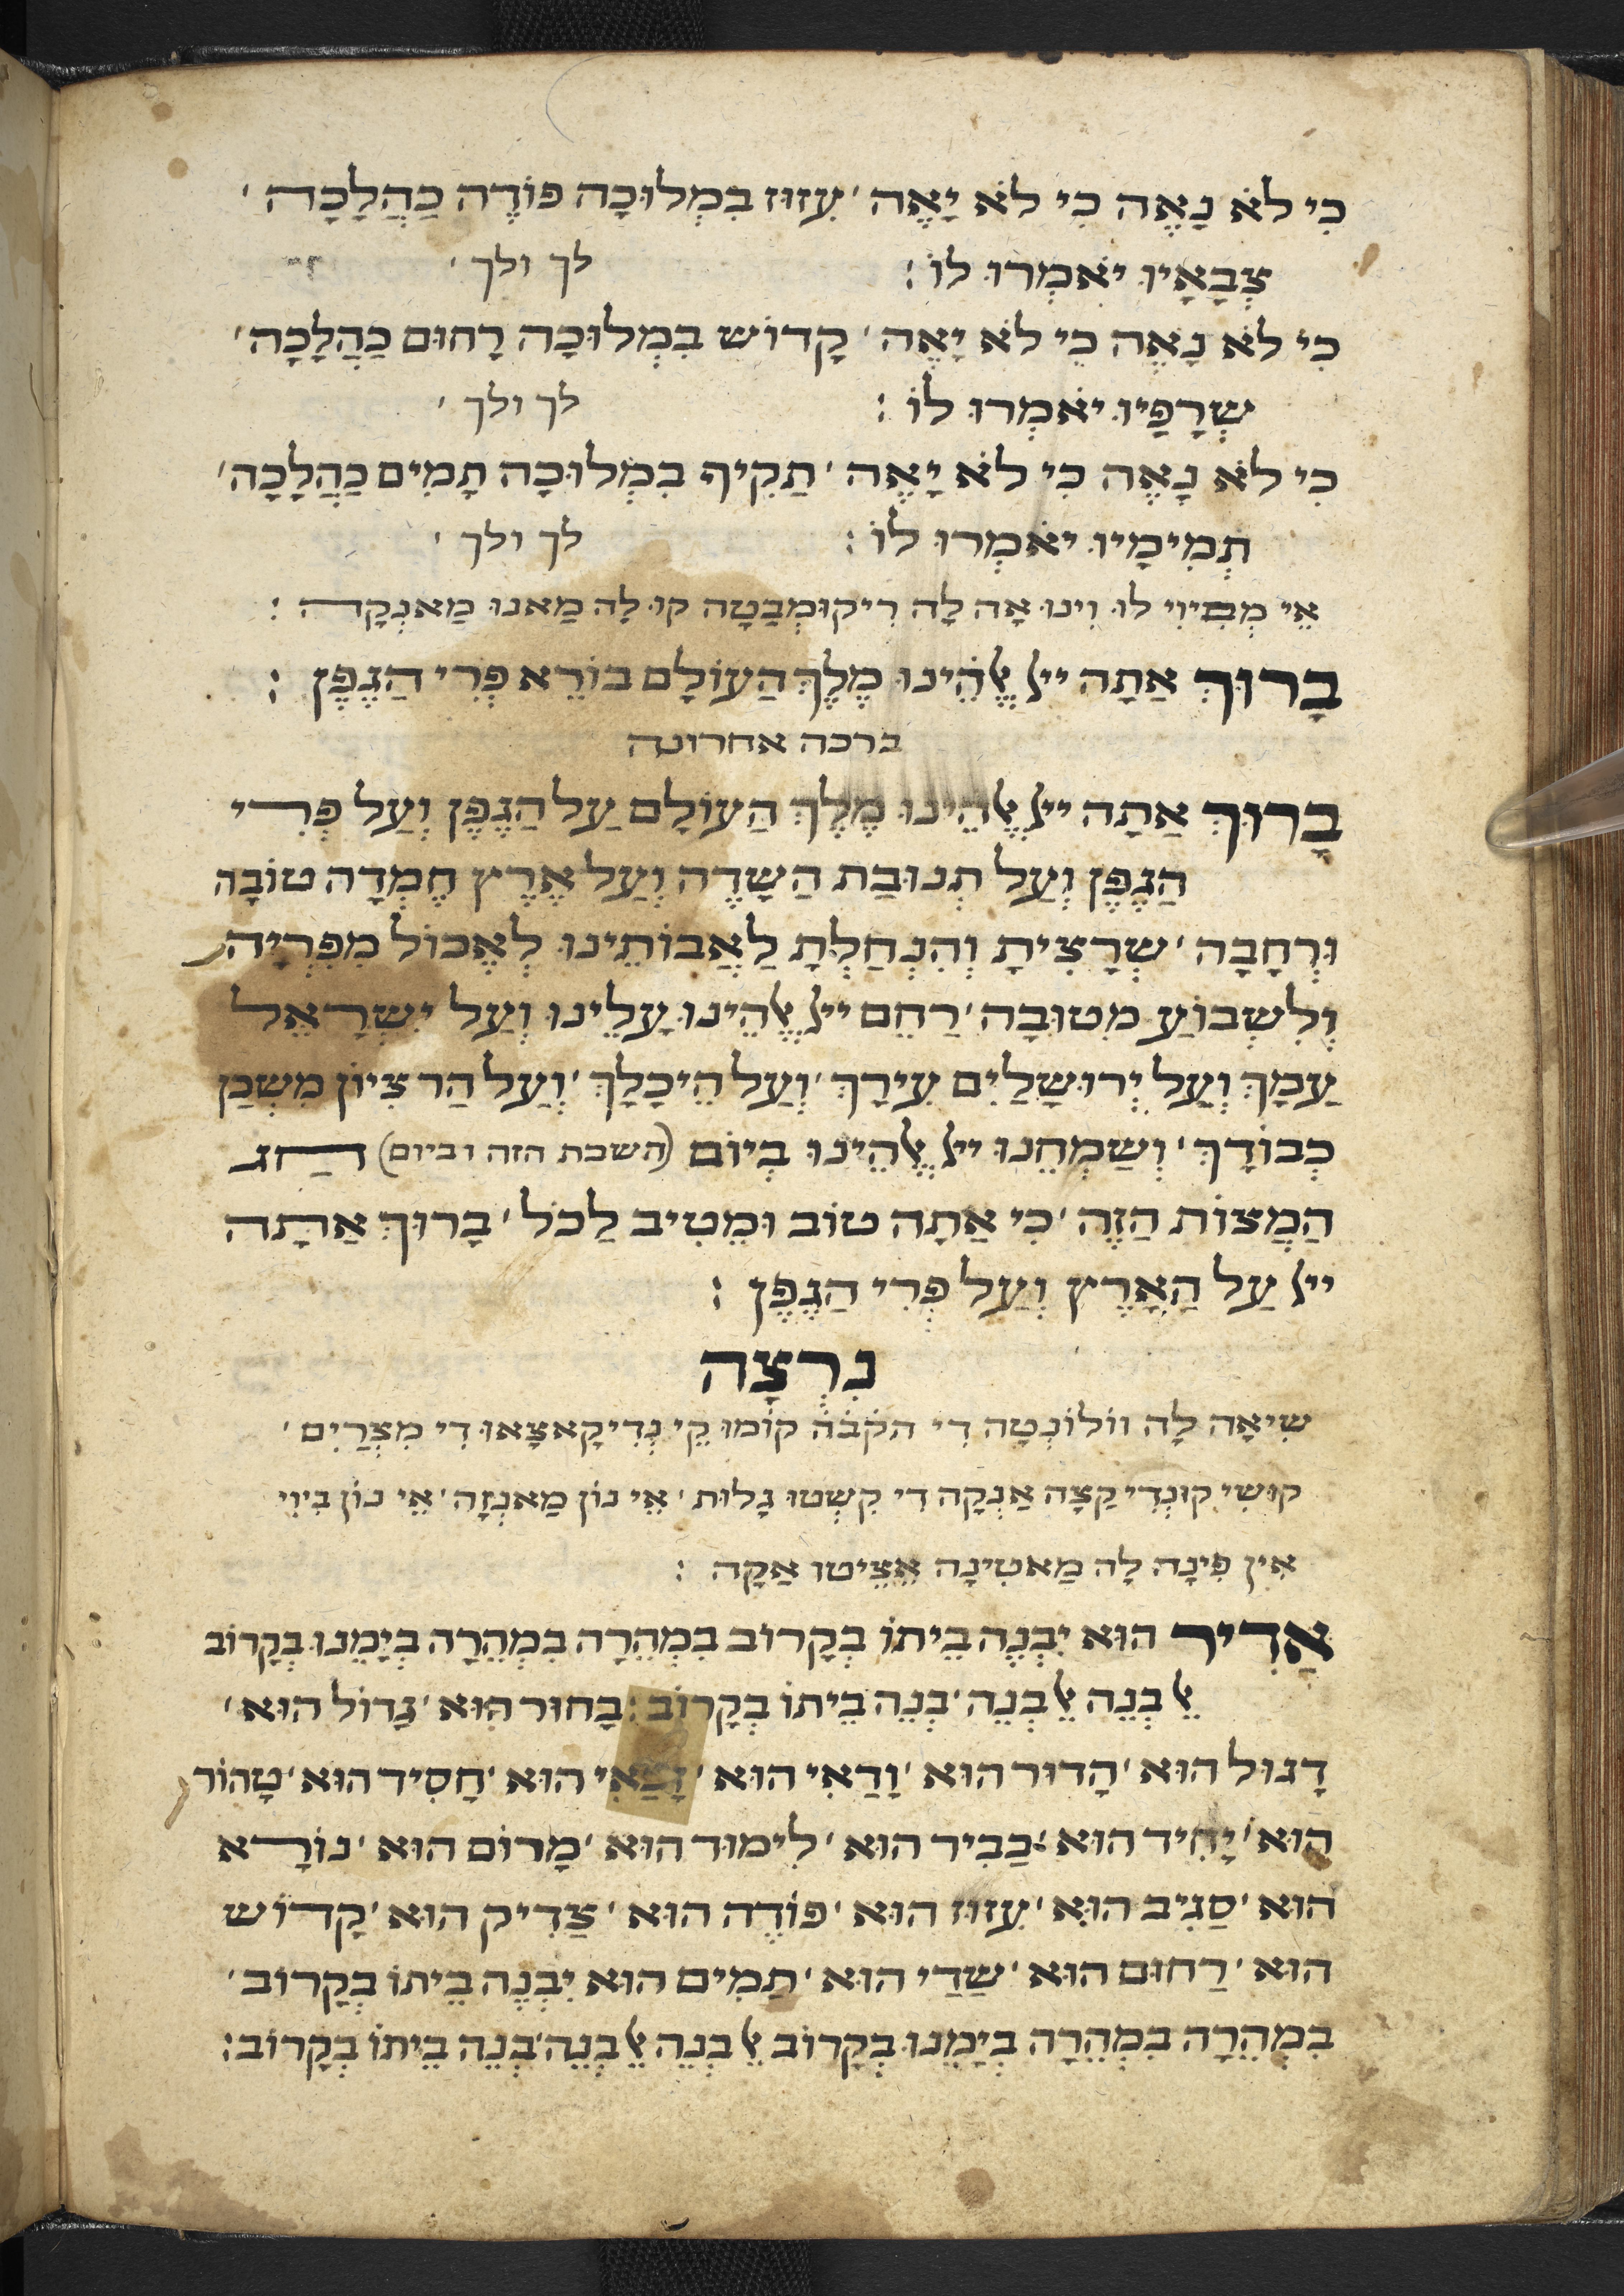 כִּי לֹא נָאֶה כִּי לֹא יָאֶה ׳ עִזּוּז בִּמְלוּכָה פּוֹדֶה כַּהֲלָכָה ׳
צְבָאָיו יֹאמְרוּ לוֹ : לך ולך ׳
כִּי לֹא נָאֶה כִּי לֹא יָאֶה ׳ קָדוֹשׁ בִּמְלוּכָה רַחוּם כַּהֲלָכָה ׳
שְׂרָפָיו יֹאמְרוּ לוֹ : לך ולך ׳
כִּי לֹא נָאֶה כִּי לֹא יָאֶה ׳ תַקִיף בִּמְלוּכָה תָמִים כַּהֲלָכָה ׳
תְמִימָיו יֹאמְרוּ לוֹ : לך ולך ׳
אֵי מְבֵּיוִי לוּ וִינוּ אָה לָה רִיקוּמְבָּטָה קוּ לָה מַאנוּ מַאנְקָה :
בָּרוּךְ אַתָּה ייל אֱלֹהֵינוּ מֶלֶךְ הָעוֹלָם בּוֹרֵא פְּרִי הַגֶּפֶן :
ברכה אחרונה
בָּרוּךְ אַתָּה ייל אֱלֹהֵינוּ מֶלֶךְ הָעוֹלָם עַל הַגֶּפֶן וְעַל פְּרִי
הַגֶּפֶן וְעַל תְּנוּבַת הַשָּׂדֶה וְעַל אֶרֶץ חֶמְדָּה טוֹבָה
וּרְחָבָה ׳ שֶׁרָצִיתָ וְהִנְחַלְתָּ לַאֲבוֹתֵינוּ לֶאֱכוֹל מִפִּרְיָה
וְלִשְׂבּוֹעַ מִטּוּבָהּ ׳ רַחֵם ייל אֱלֹהֵינוּ עָלֵינוּ וְעַל יִשְׂרָאֵל
עַמָּךְ וְעַל יְרוּשָׁלַיִם עִירָךְ ׳ וְעַל הֵיכָלָךְ ׳ וְעַל הַר צִיּוֹן מִשְׁכַּן
כְּבוֹדָךְ ׳ וְשַׂמְּחֵנוּ ייל אֱלֹהֵינוּ בְּיוֹם (השבת הזה וביום) חַג
הַמַּצּוֹת הַזֶּה ׳ כִּי אַתָּה טוֹב וּמֵטִיב לַכֹּל ׳ בָּרוּךְ אַתָּה
ייל עַל הָאָרֶץ וְעַל פְּרִי הַגֶּפֶן :
נִרְצָה
שִׁיאָה לָה ווֹלוֹנְטָה דִי הקבה קוֹמוּ קֵי נְדִיקָאצָאוּ דִי מִצְרַיִם ׳
קוּשִׁי קוּנְדִי קַצָה אַנְקָה דִי קִשְׁטוּ גָלוּת ׳ אֵי נוֹן מַאנְזָה ׳ אֵי נוֹן בִּיוִי
אִין פִינָה לָה מַאטִינָה אֵצֵיטוּ אַקָה :
אַדִּיר הוּא יִבְנֶה בֵיתוֹ בְּקָרוֹב בִּמְהֵרָה בִּמְהֵרָה בְּיָמֵנוּ בְּקָרוֹב
אֵל בְּנֵה אֵל בְּנֵה ׳ בְּנֵה בֵיתוֹ בְּקָרוֹב : בָּחוּר הוּא ׳ גָּדוֹל הוּא ׳
דָּגוּל הוּא ׳ הָדוּר הוּא ׳ וַדַּאִי הוּא ׳ זַכַּאִי הוּא ׳ חָסִיד הוּא ׳ טָהוֹר
הוּא ׳ יָחִיד הוּא ׳ כַּבִּיר הוּא ׳ לִימוּד הוּא ׳ מָרוֹם הוּא ׳ נוֹרָא
הוּא ׳ סַגִּיב הוּא ׳ עִזּוּז הוּא ׳ פּוֹדֶה הוּא ׳ צַדִּיק הוּא ׳ קָדוֹשׁ
הוּא ׳ רַחוּם הוּא ׳ שַׁדַּי הוּא ׳ תַמִים הוּא יִבְנֶה בֵיתוֹ בְּקָרוֹב ׳
בִּמְהֵרָה בִּמְהֵרָה בְּיָמֵנוּ בְּקָרוֹב אֵל בְּנֵה אֵל בְּנֵה ׳ בְּנֵה בֵיתוֹ בְּקָרוֹב :